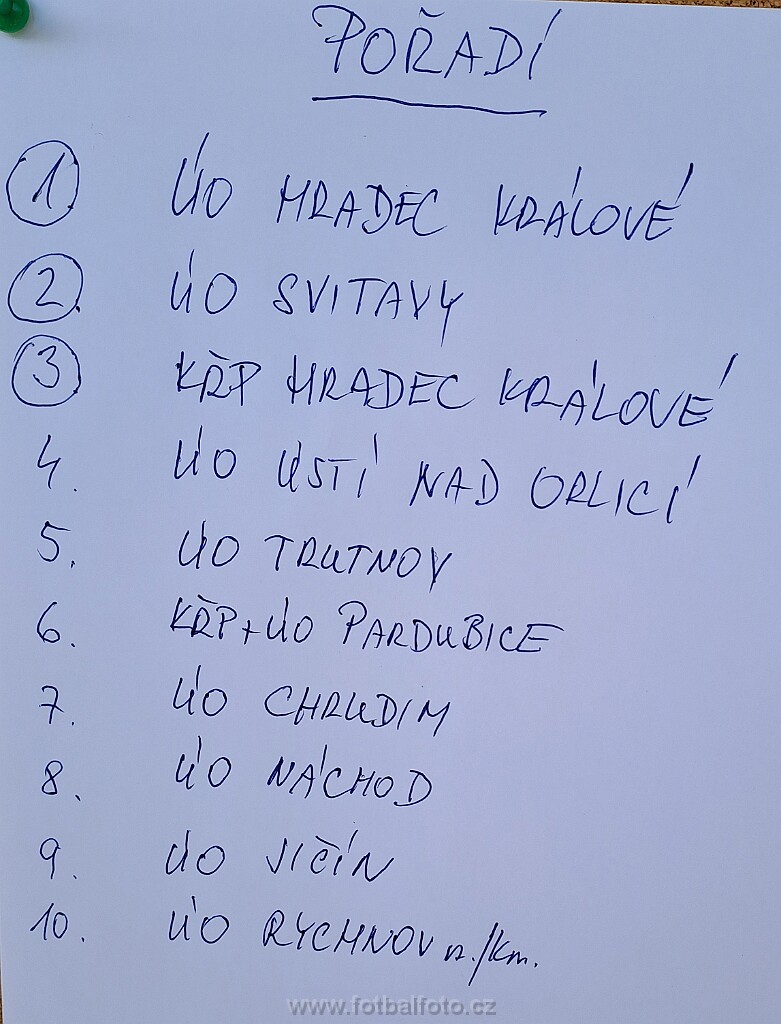 POŘADÍ
1 ÚO HRADEC KRÁLOVÉ
2. ÚO SVITAVY
3 KŘP HRADEC KRÁLOVÉ
4. ÚO ÚSTÍ NAD ORLICÍ
5. ÚO TRUTNOV
6. KŘP+ÚO PARDUBICE
7. ÚO CHRUDIM
8. ÚO NÁCHOD
9. ÚO JIČÍN
10. ÚO RYCHNOV n./Kn.
www.fotbalfoto.cz